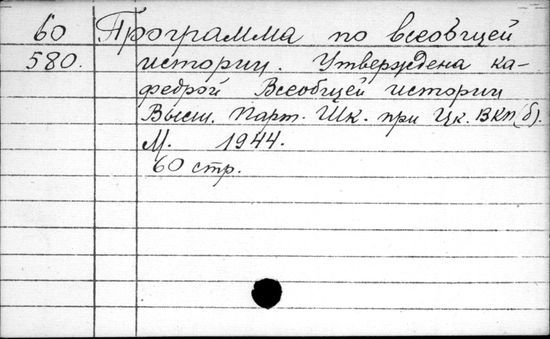 60 Программа по всеобщей
580. истории. Утверждена ка-
федрой Всеобщей истории
Высш. Парт. Шк. при Цк. ВКП(б).
М. 1944.
60 стр.